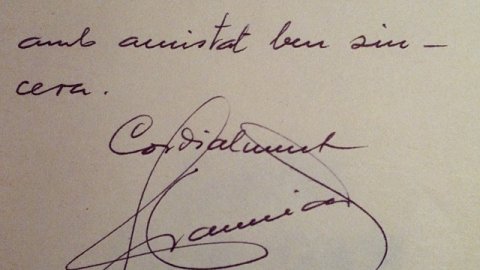 amb amistat ben sin-
cera.
Cordialment